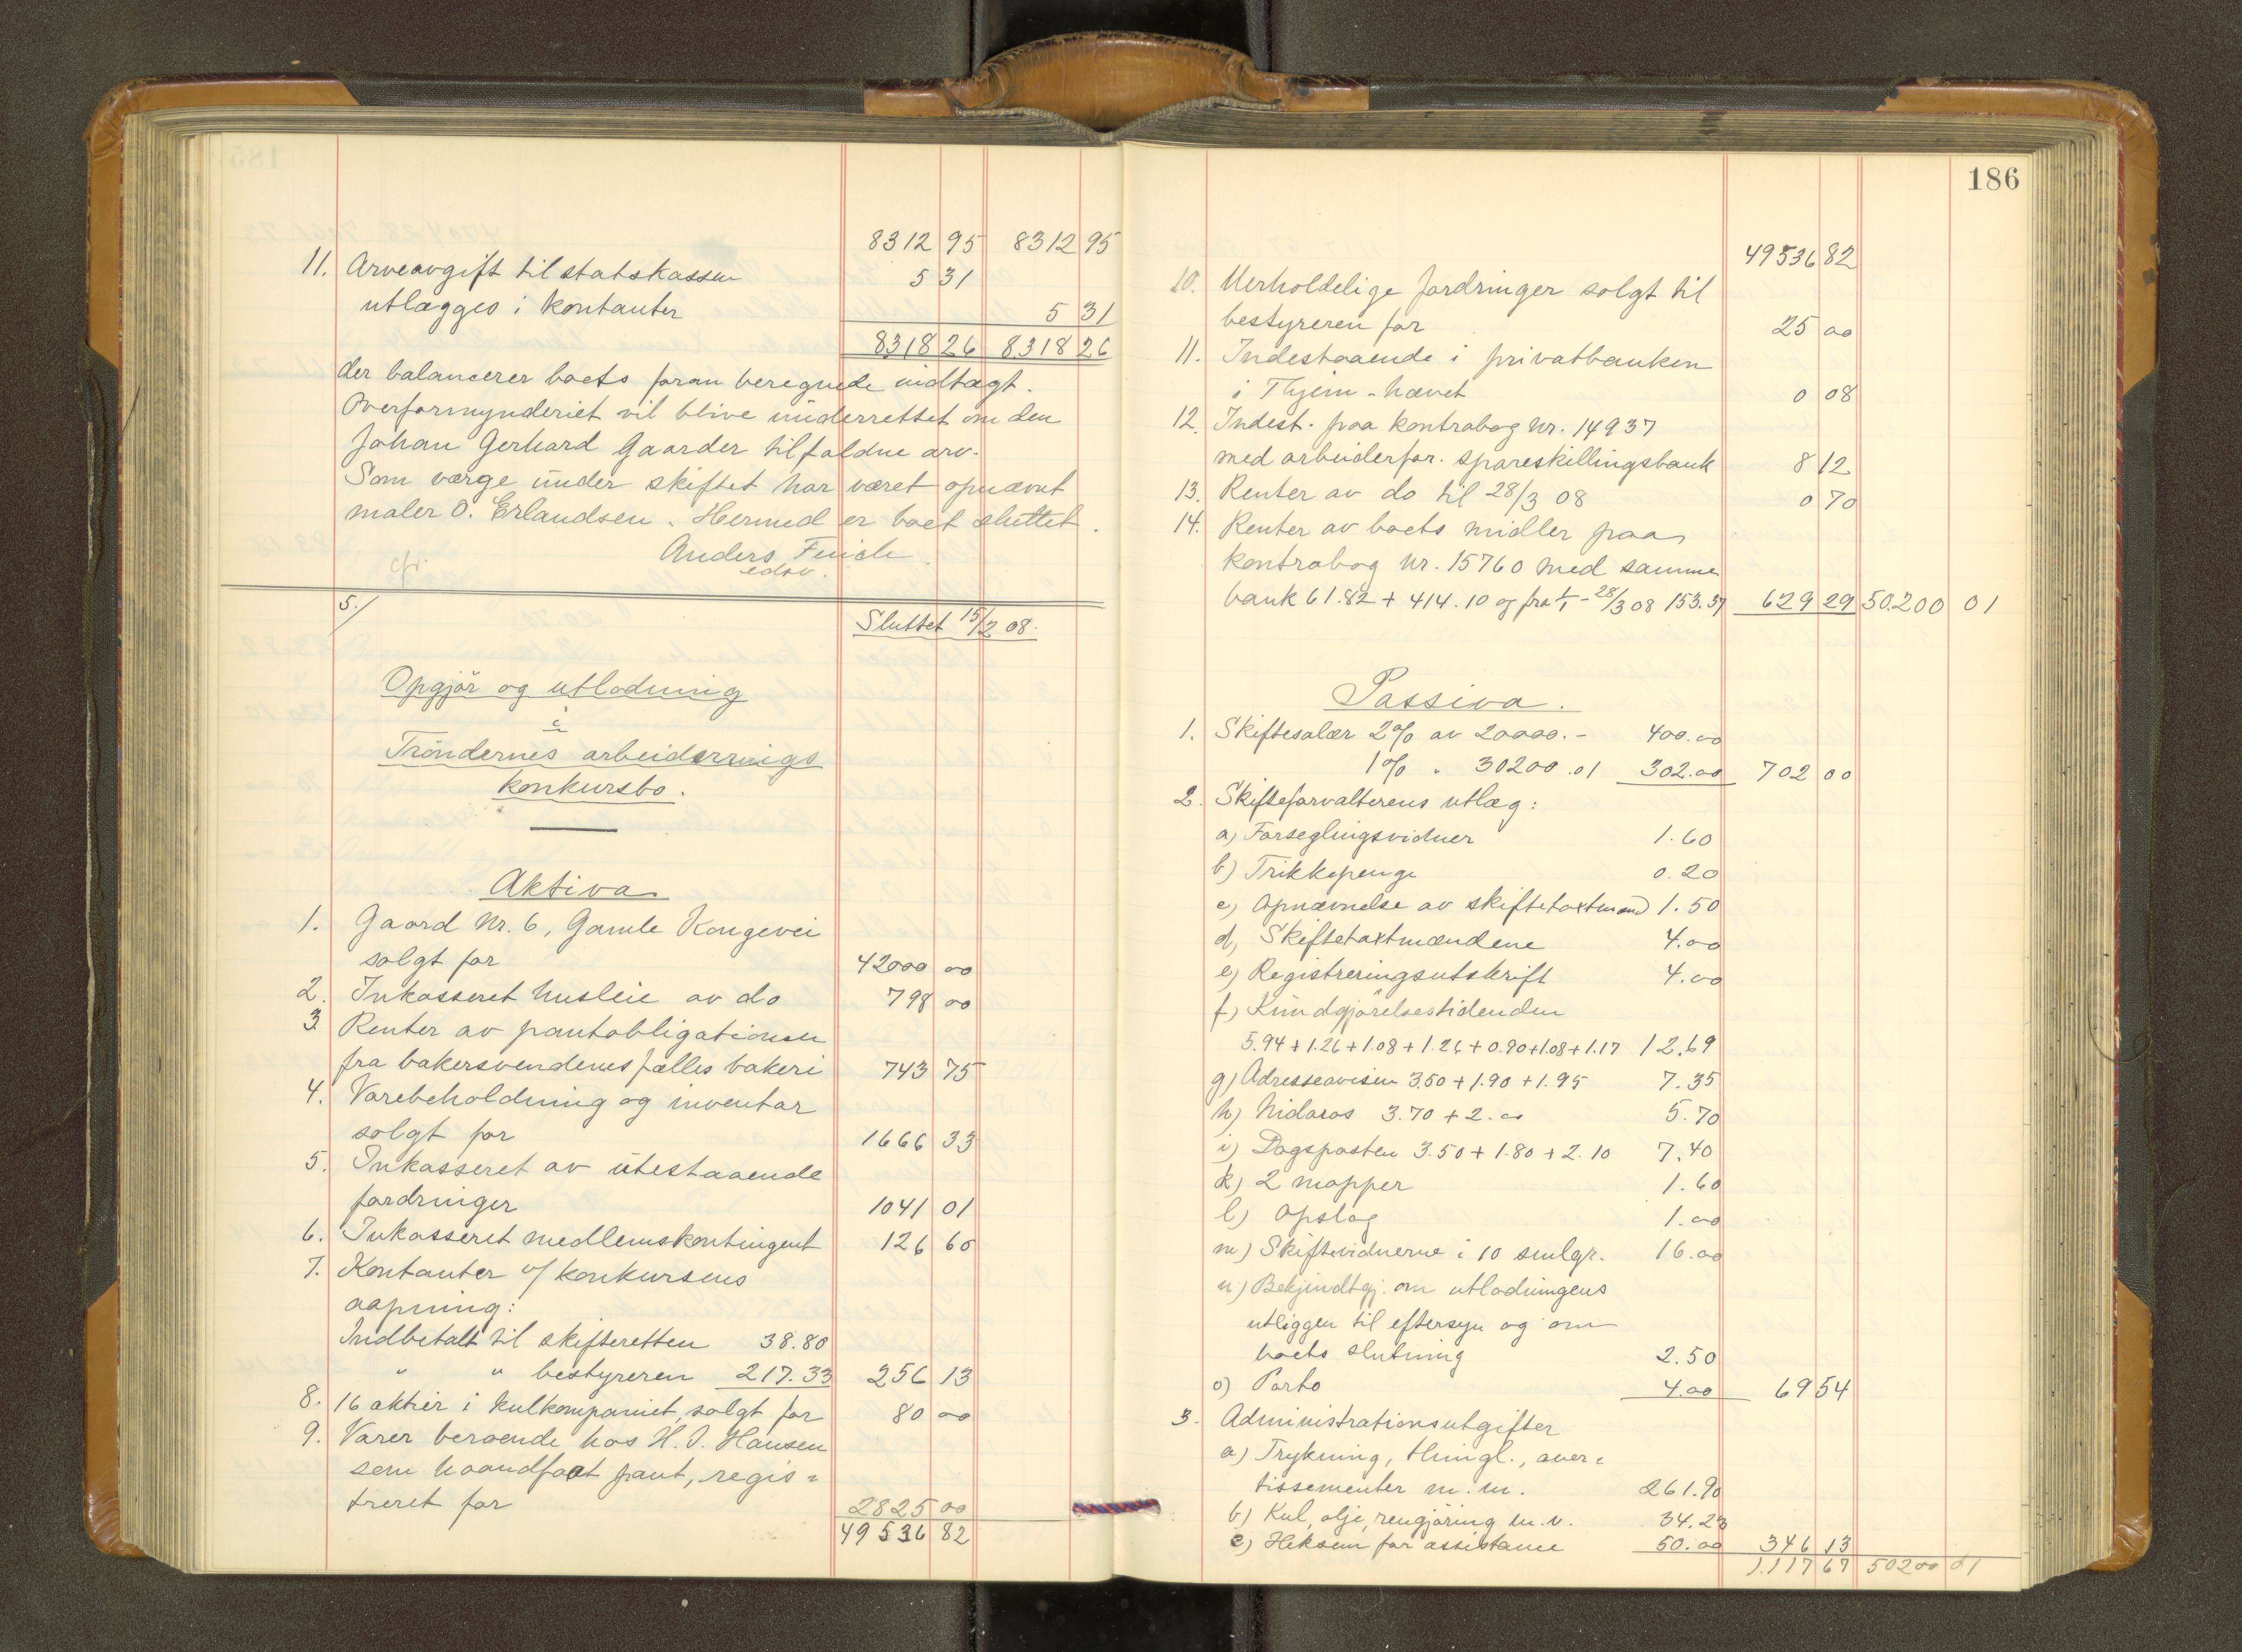 8312 95 8312 95
11. Arveavgift til statskassen 5 31
utlægges i kontanter 5 31
8318 26 8318 26
der balancerer boets foran beregnede indtægt.
Overformynderiet vil blive underrettet om den
Johan Gerhard Gaarder tilfaldne arv.
Som værge under skiftet har været opnævnt
maler O. Erlandsen. Hermed er boet sluttet.
Anders
edsv.
cfr.
5./
Sluttet 15/2 08.
Opgjör og utlodning
i
Tröndernes arbeiderrings
konkursbo.
Aktiva
1. Gaard Nr. 6, Gamle Kongevei
solgt for 42000 00
2. Inkasseret husleie av do 798 00
3. Renter av pantobligationen
fra bakersvendenes fælles bakeri 743 75
4. Varebeholdning og inventar
solgt for 1666 33
5. Inkasseret av utestaaende
fordringer 1041 01
6. Inkasseret medlemskontingent 126 60
7. Kontanter v/ konkursens
aapning:
Indbetalt til skifteretten 38.80
" " bestyreren 217.33 256 13
8. 16 aktier i kulkompaniet, solgt for 80 00
9. Varer beroende hos H. O. Hansen
som haandfaat pant, regis=
treret for 2825 00
49536 82
186
49536 82
10. Uerholdelige fordringer solgt til
bestyreren for 25 00
11. Indestaaende i privatbanken
i Thjem - hævet 0 08
12. Indest. paa kontrabog Nr. 14937
med arbeiderfor. spareskillingsbank 8 12
13. Renter av do til 28/3 08 0 70
14. Renter av boets midler paa
kontrabog Nr. 15760 med samme
bank 61.82 + 414.10 og fra 1/1 - 28/3 08 153.37 629 29 50.200 01
Passiva.
1. Skiftesalær 2% av 20000.- 400.00
1% " 30200.01 302.00 702 00
2. Skifteforvalterens utlæg:
a) Forseglingsvidner 1.60
b) Trikkepenge 0.20
c) Opnævnelse av skiftetaxtmænd 1.50
d) Skiftetaxtmændene 4.00
e) Registreringsutskrift 4.00
f) Kundgjörelsestidenden
5.94 + 1.26 + 1.08 + 1.26 + 0.90 + 1.08 + 1.17 12.69
g) Adresseavisen 3.50 + 1.90 + 1.95 7.35
h) Nidaros 3.70 + 2.00 5.70
i) Dagsposten 3.50 + 1.80 + 2.10 7.40
k) 2 mapper 1.60
l) Opslag 1.00
m) Skiftevidnerne i 10 smlgr. 16.00
n) Bekjendtgj. om utlodningens
utliggen til eftersyn og om
boets slutning 2.50
o) Porto 4.00 69 54
3. Administrationsutgifter
a) Trykning, thingl., aver=
tissementer m. m. 261.90
b) Kul, olje, rengjöring m. v. 34.23
c) Heksem for assistance 50.00 346 13
1.117 67 50200 01